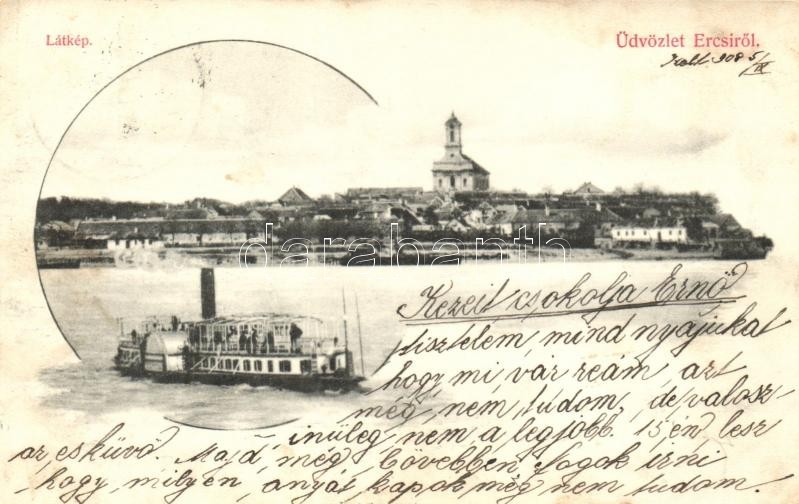 Látkép.
Üdvözlet Ercsiről.
Kelt. 908 5/IX
darabanth
Kezeit csokolja Ernő
tisztelem, mind nyájukat
hogy mi, vár reám, azt
még, nem tudom, de valosz-
inüleg nem a legjobb. 15 én lesz
az esküvő. Majd, még, bövebben fogok irni
hogy, milyen, anyát kapok még nem tudom.